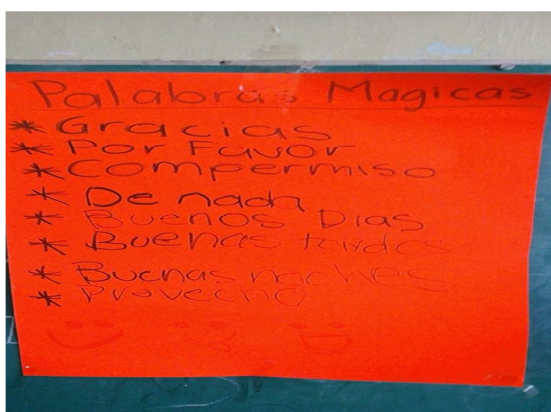 Palabras Magicas
* Gracias
* Por Favor
* Compermiso
* De nada
* Buenos Dias
* Buenas tardes
* Buenas noches
* Provecho